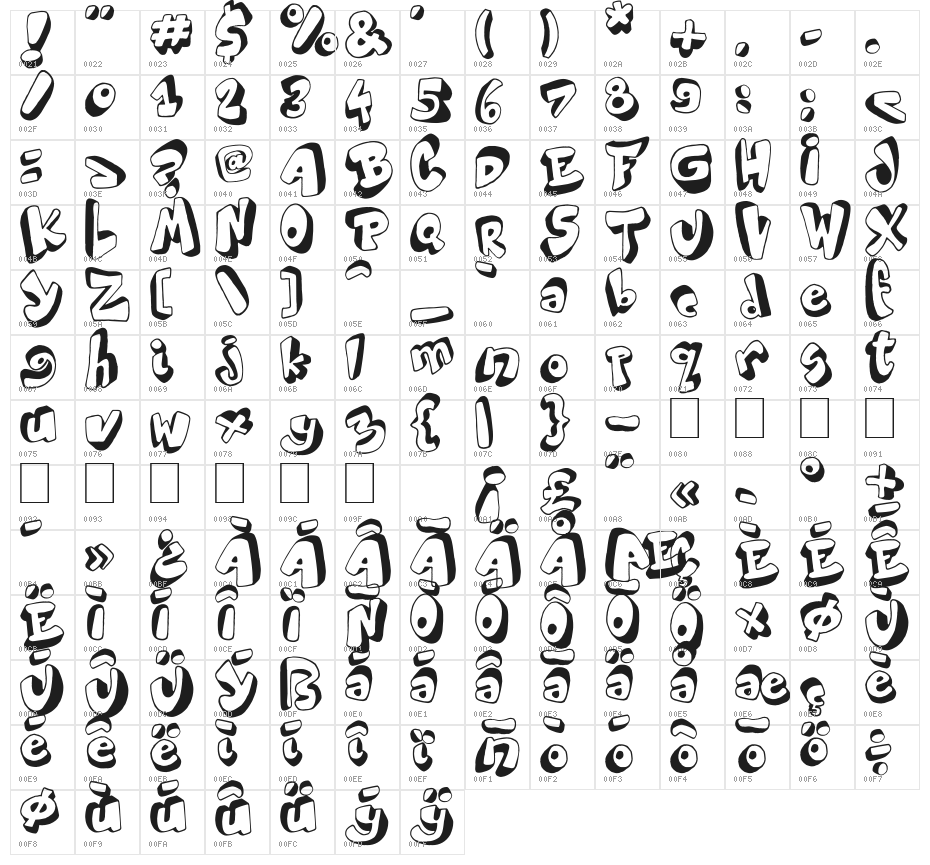 ! " # $ % & ' ( ) * + , - .
0021 0022 0023 0024 0025 0026 0027 0028 0029 002A 002B 002C 002D 002E
/ 0 1 2 3 4 5 6 7 8 9 : ; <
002F 0030 0031 0032 0033 0034 0035 0036 0037 0038 0039 003A 003B 003C
= > ? @ A B C D E F G H I J
003D 003E 003F 0040 0041 0042 0043 0044 0045 0046 0047 0048 0049 004A
K L M N O P Q R S T U V W X
004B 004C 004D 004E 004F 0050 0051 0052 0053 0054 0055 0056 0057 0058
Y Z [ \ ] ^ _ ` a b c d e f
0059 005A 005B 005C 005D 005E 005F 0060 0061 0062 0063 0064 0065 0066
g h i j k l m n o p q r s t
0067 0068 0069 006A 006B 006C 006D 006E 006F 0070 0071 0072 0073 0074
u v w x y z { | } ~
0075 0076 0077 0078 0079 007A 007B 007C 007D 007E 0080 0088 008C 0091
¡ £ ¨ « ­ ° ±
0092 0093 0094 0098 009C 009F 00A0 00A1 00A3 00A8 00AB 00AD 00B0 00B1
´ » ¿ À Á Â Ã Ä Å Æ Ç È É Ê
00B4 00BB 00BF 00C0 00C1 00C2 00C3 00C4 00C5 00C6 00C7 00C8 00C9 00CA
Ë Ì Í Î Ï Ñ Ò Ó Ô Õ Ö × Ø Ù
00CB 00CC 00CD 00CE 00CF 00D1 00D2 00D3 00D4 00D5 00D6 00D7 00D8 00D9
Ú Û Ü Ý ß à á â ã ä å æ ç è
00DA 00DB 00DC 00DD 00DF 00E0 00E1 00E2 00E3 00E4 00E5 00E6 00E7 00E8
é ê ë ì í î ï ñ ò ó ô õ ö ÷
00E9 00EA 00EB 00EC 00ED 00EE 00EF 00F1 00F2 00F3 00F4 00F5 00F6 00F7
ø ù ú û ü ý ÿ
00F8 00F9 00FA 00FB 00FC 00FD 00FF